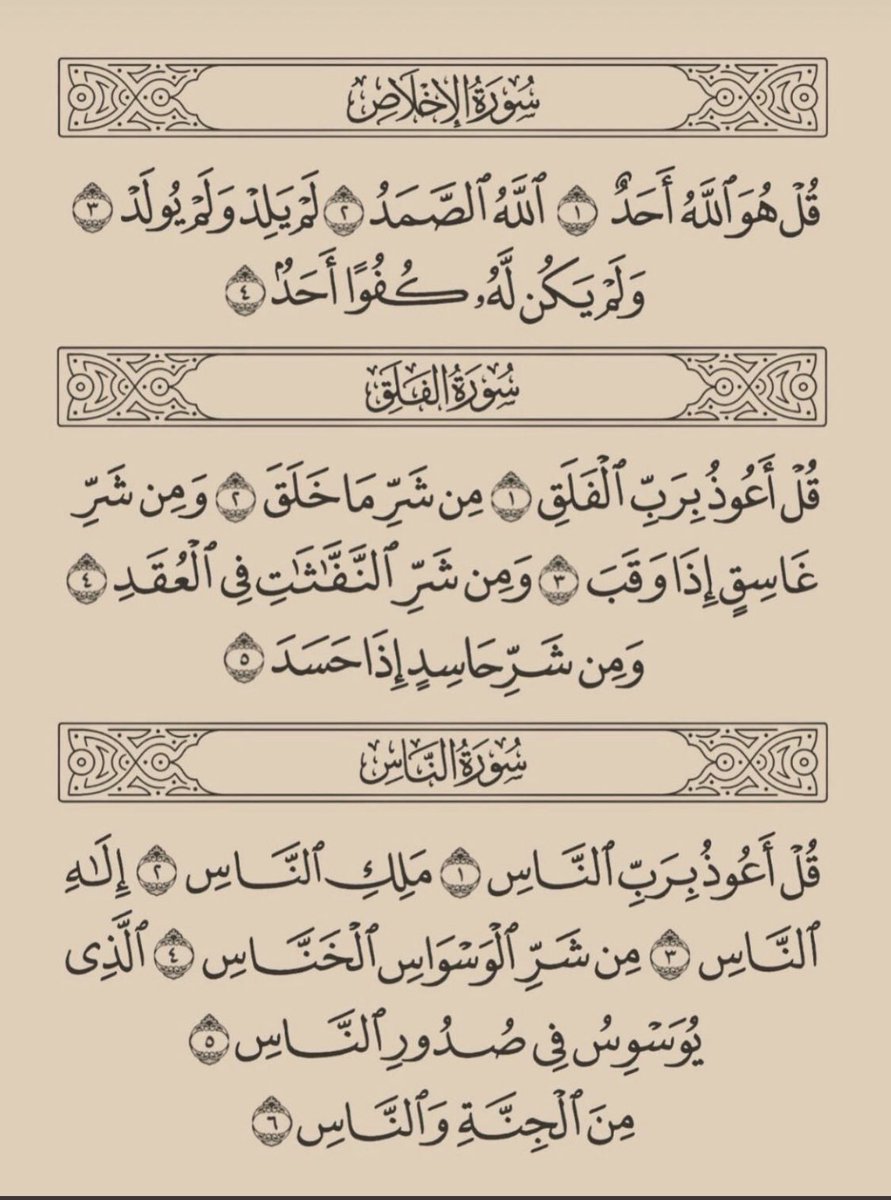 سُورَةُ الإِخْلَاصِ
قُلْ هُوَ ٱللَّهُ أَحَدٌ ١ ٱللَّهُ ٱلصَّمَدُ ٢ لَمْ يَلِدْ وَلَمْ يُولَدْ ٣
وَلَمْ يَكُن لَّهُۥ كُفُوًا أَحَدٌۢ ٤
سُورَةُ الفَلَقِ
قُلْ أَعُوذُ بِرَبِّ ٱلْفَلَقِ ١ مِن شَرِّ مَا خَلَقَ ٢ وَمِن شَرِّ
غَاسِقٍ إِذَا وَقَبَ ٣ وَمِن شَرِّ ٱلنَّفَّٰثَٰتِ فِى ٱلْعُقَدِ ٤
وَمِن شَرِّ حَاسِدٍ إِذَا حَسَدَ ٥
سُورَةُ النَّاسِ
قُلْ أَعُوذُ بِرَبِّ ٱلنَّاسِ ١ مَلِكِ ٱلنَّاسِ ٢ إِلَٰهِ
ٱلنَّاسِ ٣ مِن شَرِّ ٱلْوَسْوَاسِ ٱلْخَنَّاسِ ٤ ٱلَّذِى
يُوَسْوِسُ فِى صُدُورِ ٱلنَّاسِ ٥
مِنَ ٱلْجِنَّةِ وَٱلنَّاسِ ٦